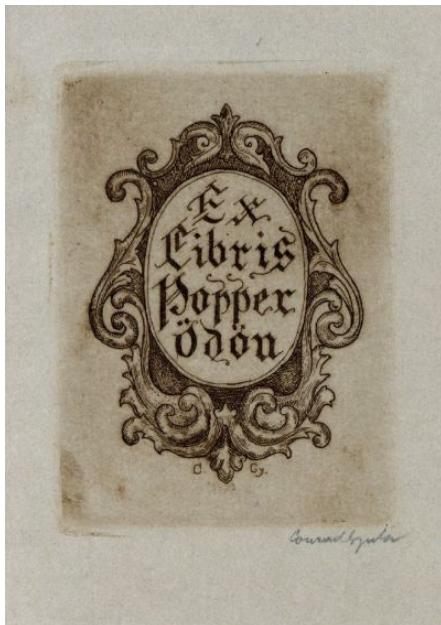 Ex
Libris
Popper
Ödön
C Gy.
Conrad Gyula